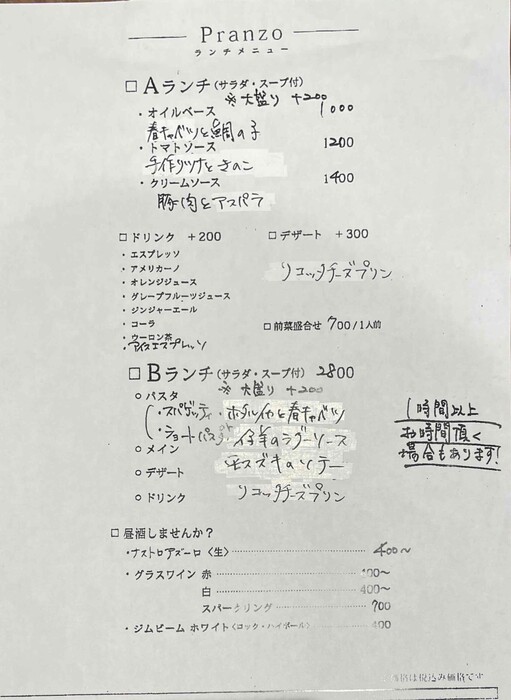 Pranzo
ランチメニュー
□ Aランチ(サラダ・スープ付)
※大盛り +200
・オイルベース 1000
春キャベツと鯛の子
・トマトソース 1200
手作りツナときのこ
・クリームソース 1400
豚肉とアスパラ
□ ドリンク +200
・エスプレッソ
・アメリカーノ
・オレンジジュース
・グレープフルーツジュース
・ジンジャーエール
・コーラ
・ウーロン茶
・アイスエスプレッソ
□ デザート +300
リコッタチーズプリン
□ 前菜盛合せ 700/1人前
□ Bランチ(サラダ・スープ付) 2800
※大盛り +200
○ パスタ
・スパゲッティ・ホタルイカと春キャベツ
・ショートパスタ 仔羊のラグーソース
○ メイン
モスズキのソテー
○ デザート
リコッタチーズプリン
○ ドリンク
1時間以上
お時間頂く
場合もあります!
□ 昼酒しませんか?
・ナストロアズーロ〈生〉 400〜
・グラスワイン 赤 400〜
白 400〜
スパークリング 700
・ジムビーム ホワイト〈ロック・ハイボール〉 400
価格は税込み価格です